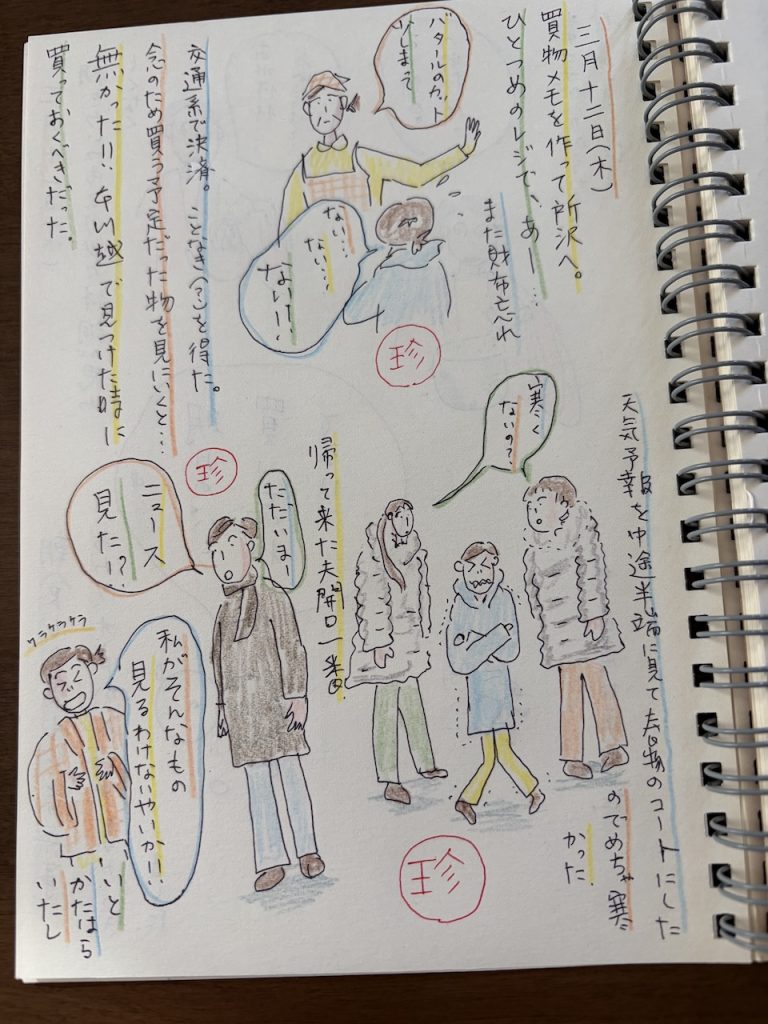 三月十二日(木)
買物メモを作って所沢へ。
ひとつめのレジで、あー…
また財布忘れ
バタールのカット
少しまって
ない…
ない…
ないけ!!
珍
交通系で決済。ことなき(?)を得た。
念のため買う予定だった物を見にいくと…
無かった!!本川越で見つけた時に
買っておくべきだった。
天気予報を中途半端に見て春物のコートにした
のでめちゃ寒
かった
寒く
ないの?
珍
帰って来た夫開口一番
ただいまー
ニュース
見た!?
珍
私がそんなもの
見るわけないやいか!!
ケラケラケラ
いと
かたはら
いたし